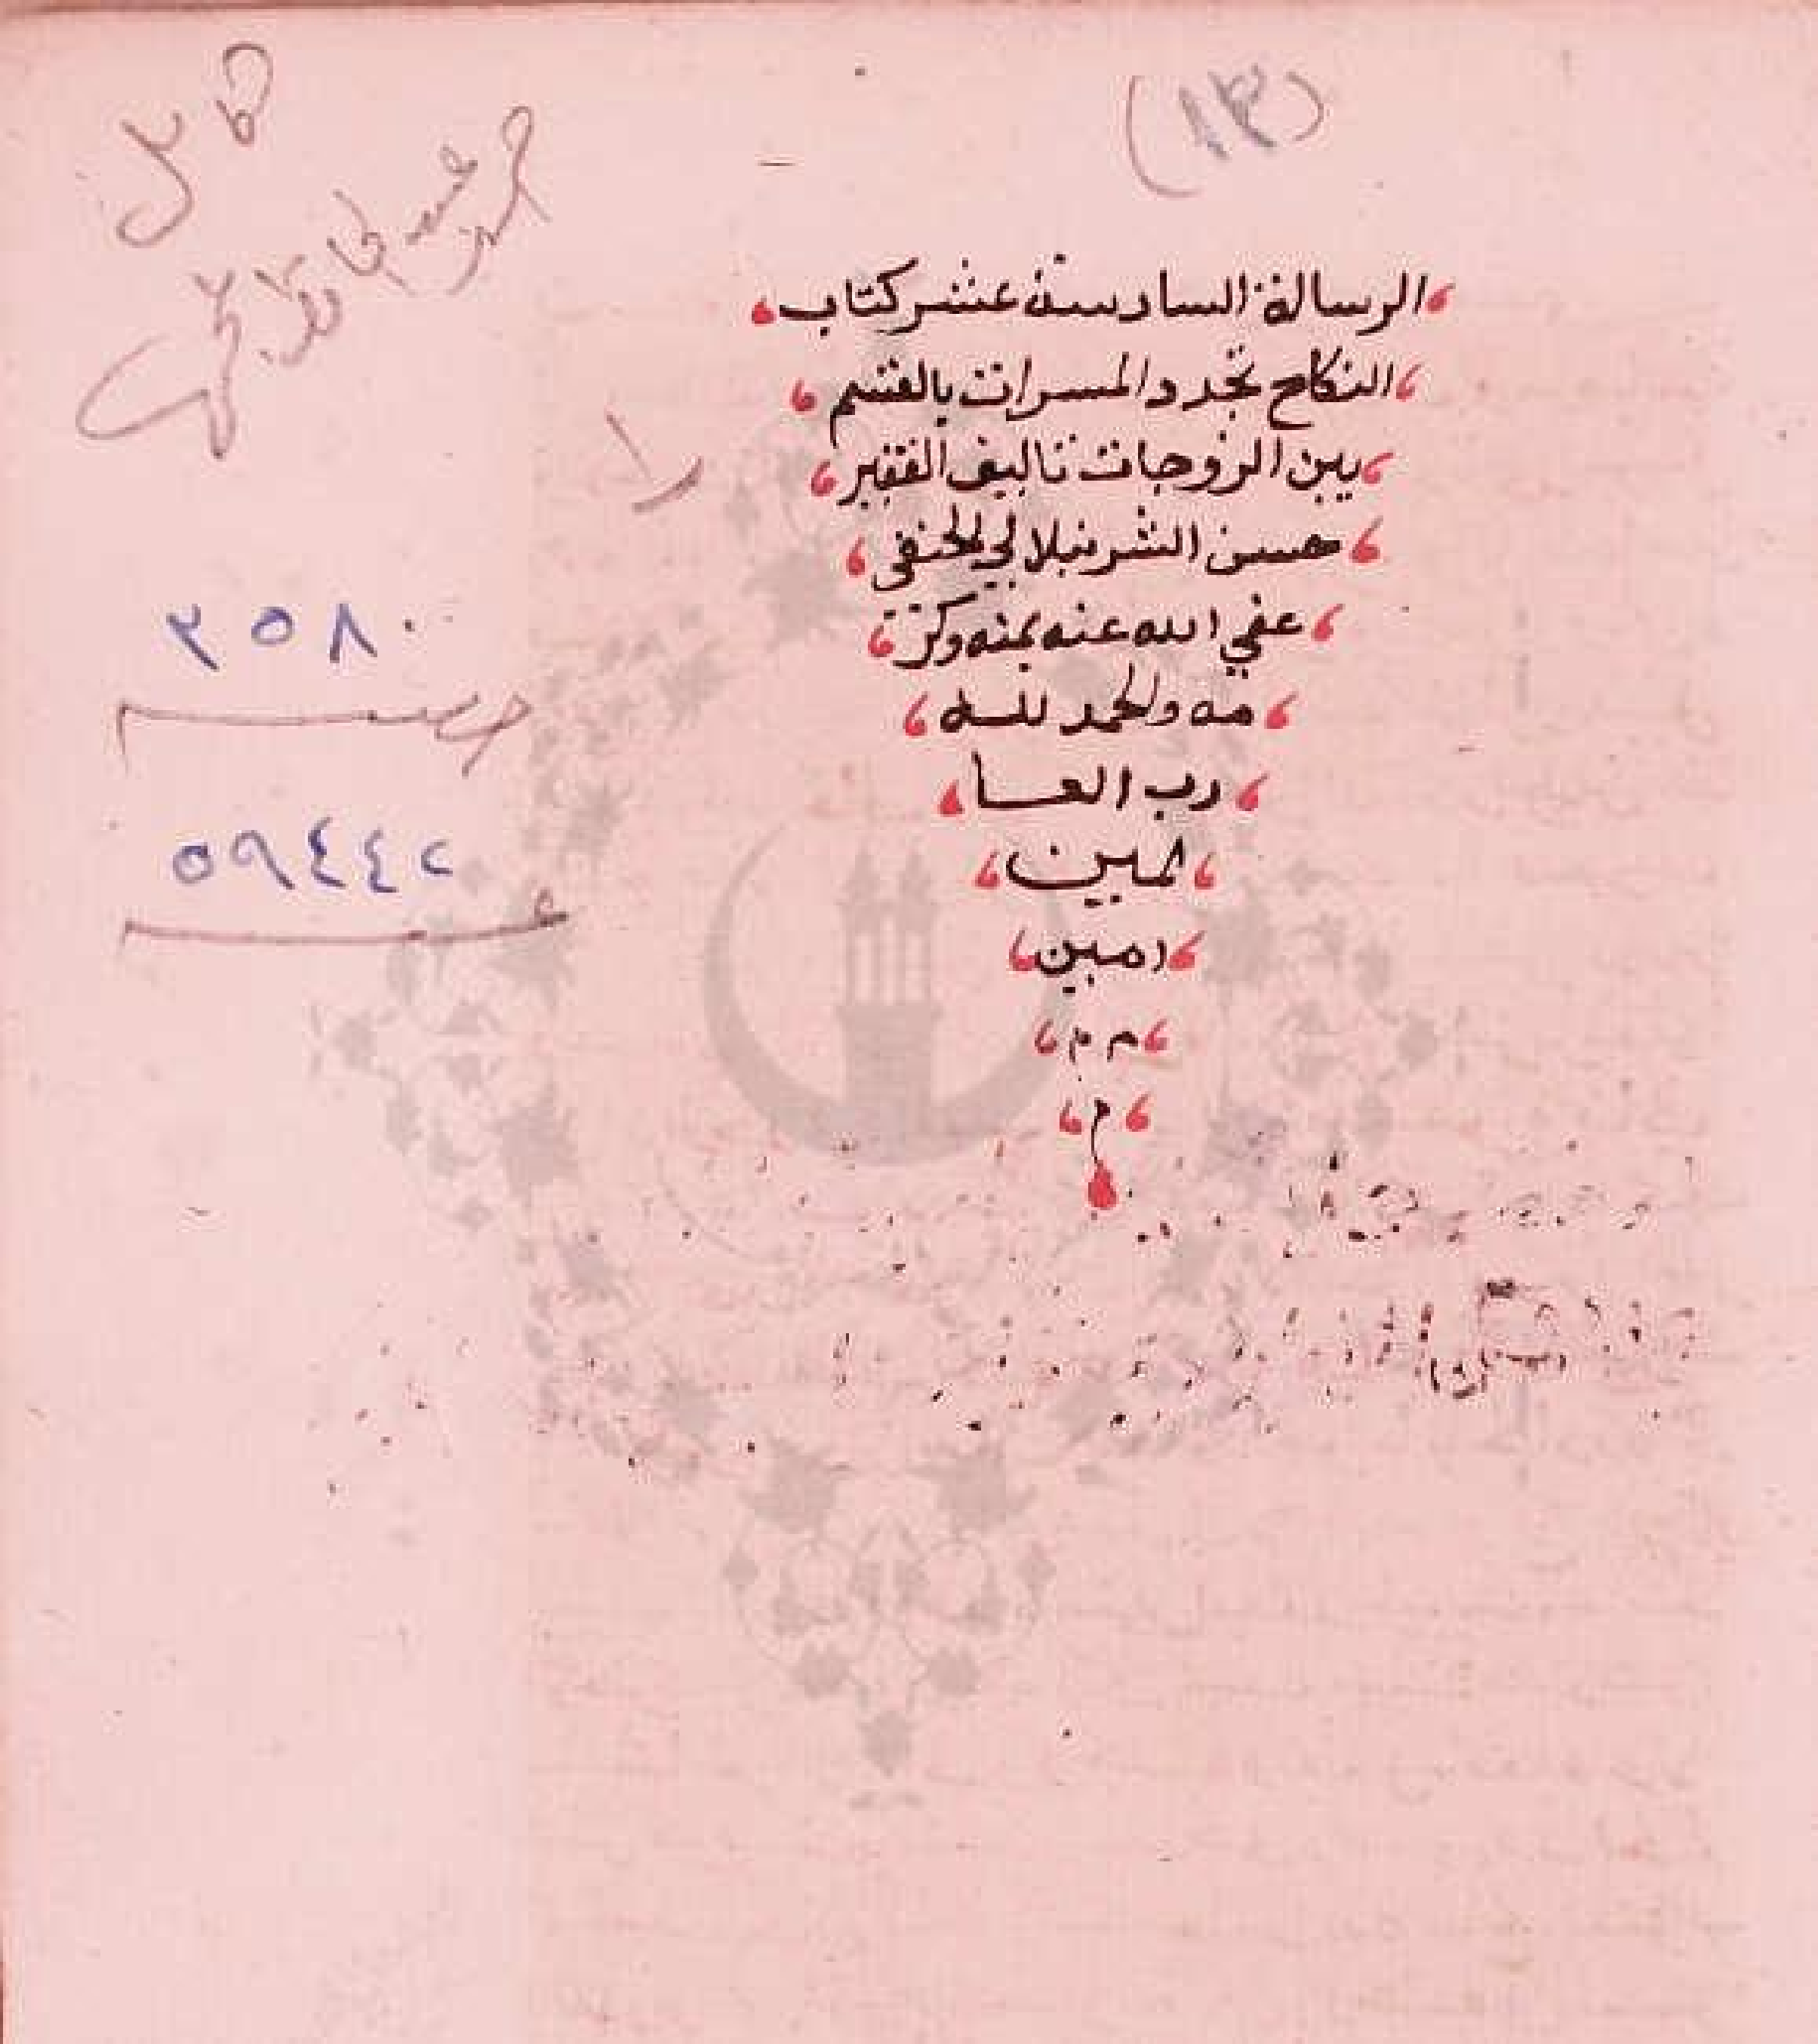 (١٣)
الرسالة السادسة عشر كتاب
النكاح تجدد المسرات بالقسم
بين الزوجات تاليف الفقير
حسن الشرنبلالي الحنفي
عفي الله عنه بمنه وكر
مه والحمد لله
رب العا
لمين
امين
م م
م
٢٥٨٠
٥٩٤٤٢